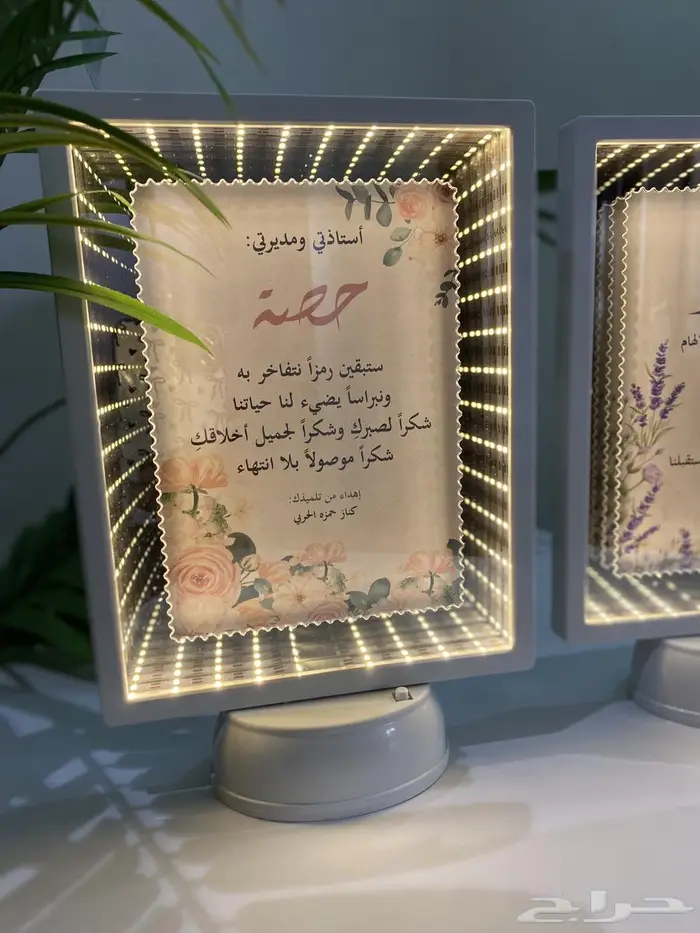 أستاذتي ومديرتي:
حصة
ستبقين رمزاً نتفاخر به
ونبراساً يضيء لنا حياتنا
شكراً لصبركِ وشكراً لجميل أخلاقكِ
شكراً موصولاً بلا انتهاء
إهداء من تلميذك:
كناز حمزه الحربي
حراج